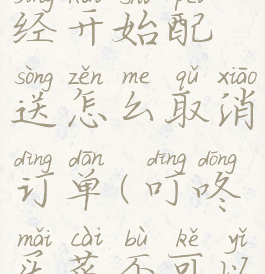 经开始配
sòng zěn me qǔ xiāo
送怎么取消
dìng dān dīng dōng
订单(叮咚
mǎi cài bù kě yǐ
买菜不可以